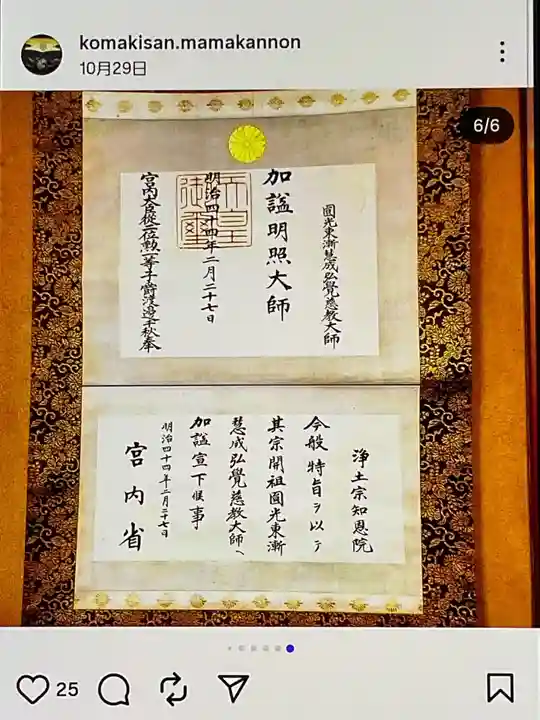 komakisan.mamakannon
10月29日
6/6
圓光東漸慧成弘覺慈教大師
加諡明照大師
明治四十四年二月二十七日
天皇御璽
宮内大臣從二位勲一等子爵渡邉千秋奉
浄土宗知恩院
今般特旨ヲ以テ
其宗開祖圓光東漸
慧成弘覺慈教大師ヘ
加諡宣下候事
明治四十四年二月二十七日
宮内省
25